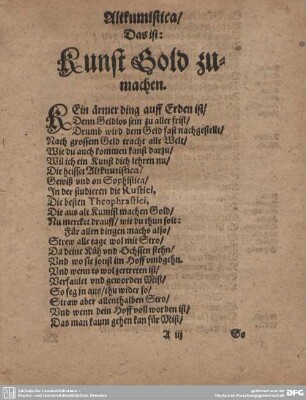 Altkumistica/
Das ist:
Kunst Gold zu-
machen.
KEin ärmer ding auff Erden ist/
Denn Geldlos sein zu aller frist/
Drumb wird dem Geld fast nachgestellt/
Nach grossem Geld tracht alle Welt/
Wie du auch kommen kanst darzu/
Wil ich ein Kunst dich lehren nu/
Die heisset Altkumistica/
Gewiß und on Sophistica/
In der studieren die Rustici,
Die besten Theophrastici,
Die aus alt Kumist machen Gold/
Nu mercket drauff/ wie du thun solt:
Für allen dingen machs also/
Strew alle tage wol mit Stro/
Da deine Küh und Ochssen stehn/
Und wo sie sonst im Hoff umbgehn.
Und wenn es wol zertretten ist/
Verfaulet und geworden Mist/
So feg jn aus/ thu wider so/
Straw aber allenthalben Stro/
Und wenn dein Hoff voll worden ist/
Das man kaum gehen kan für Mist/
A iij
So